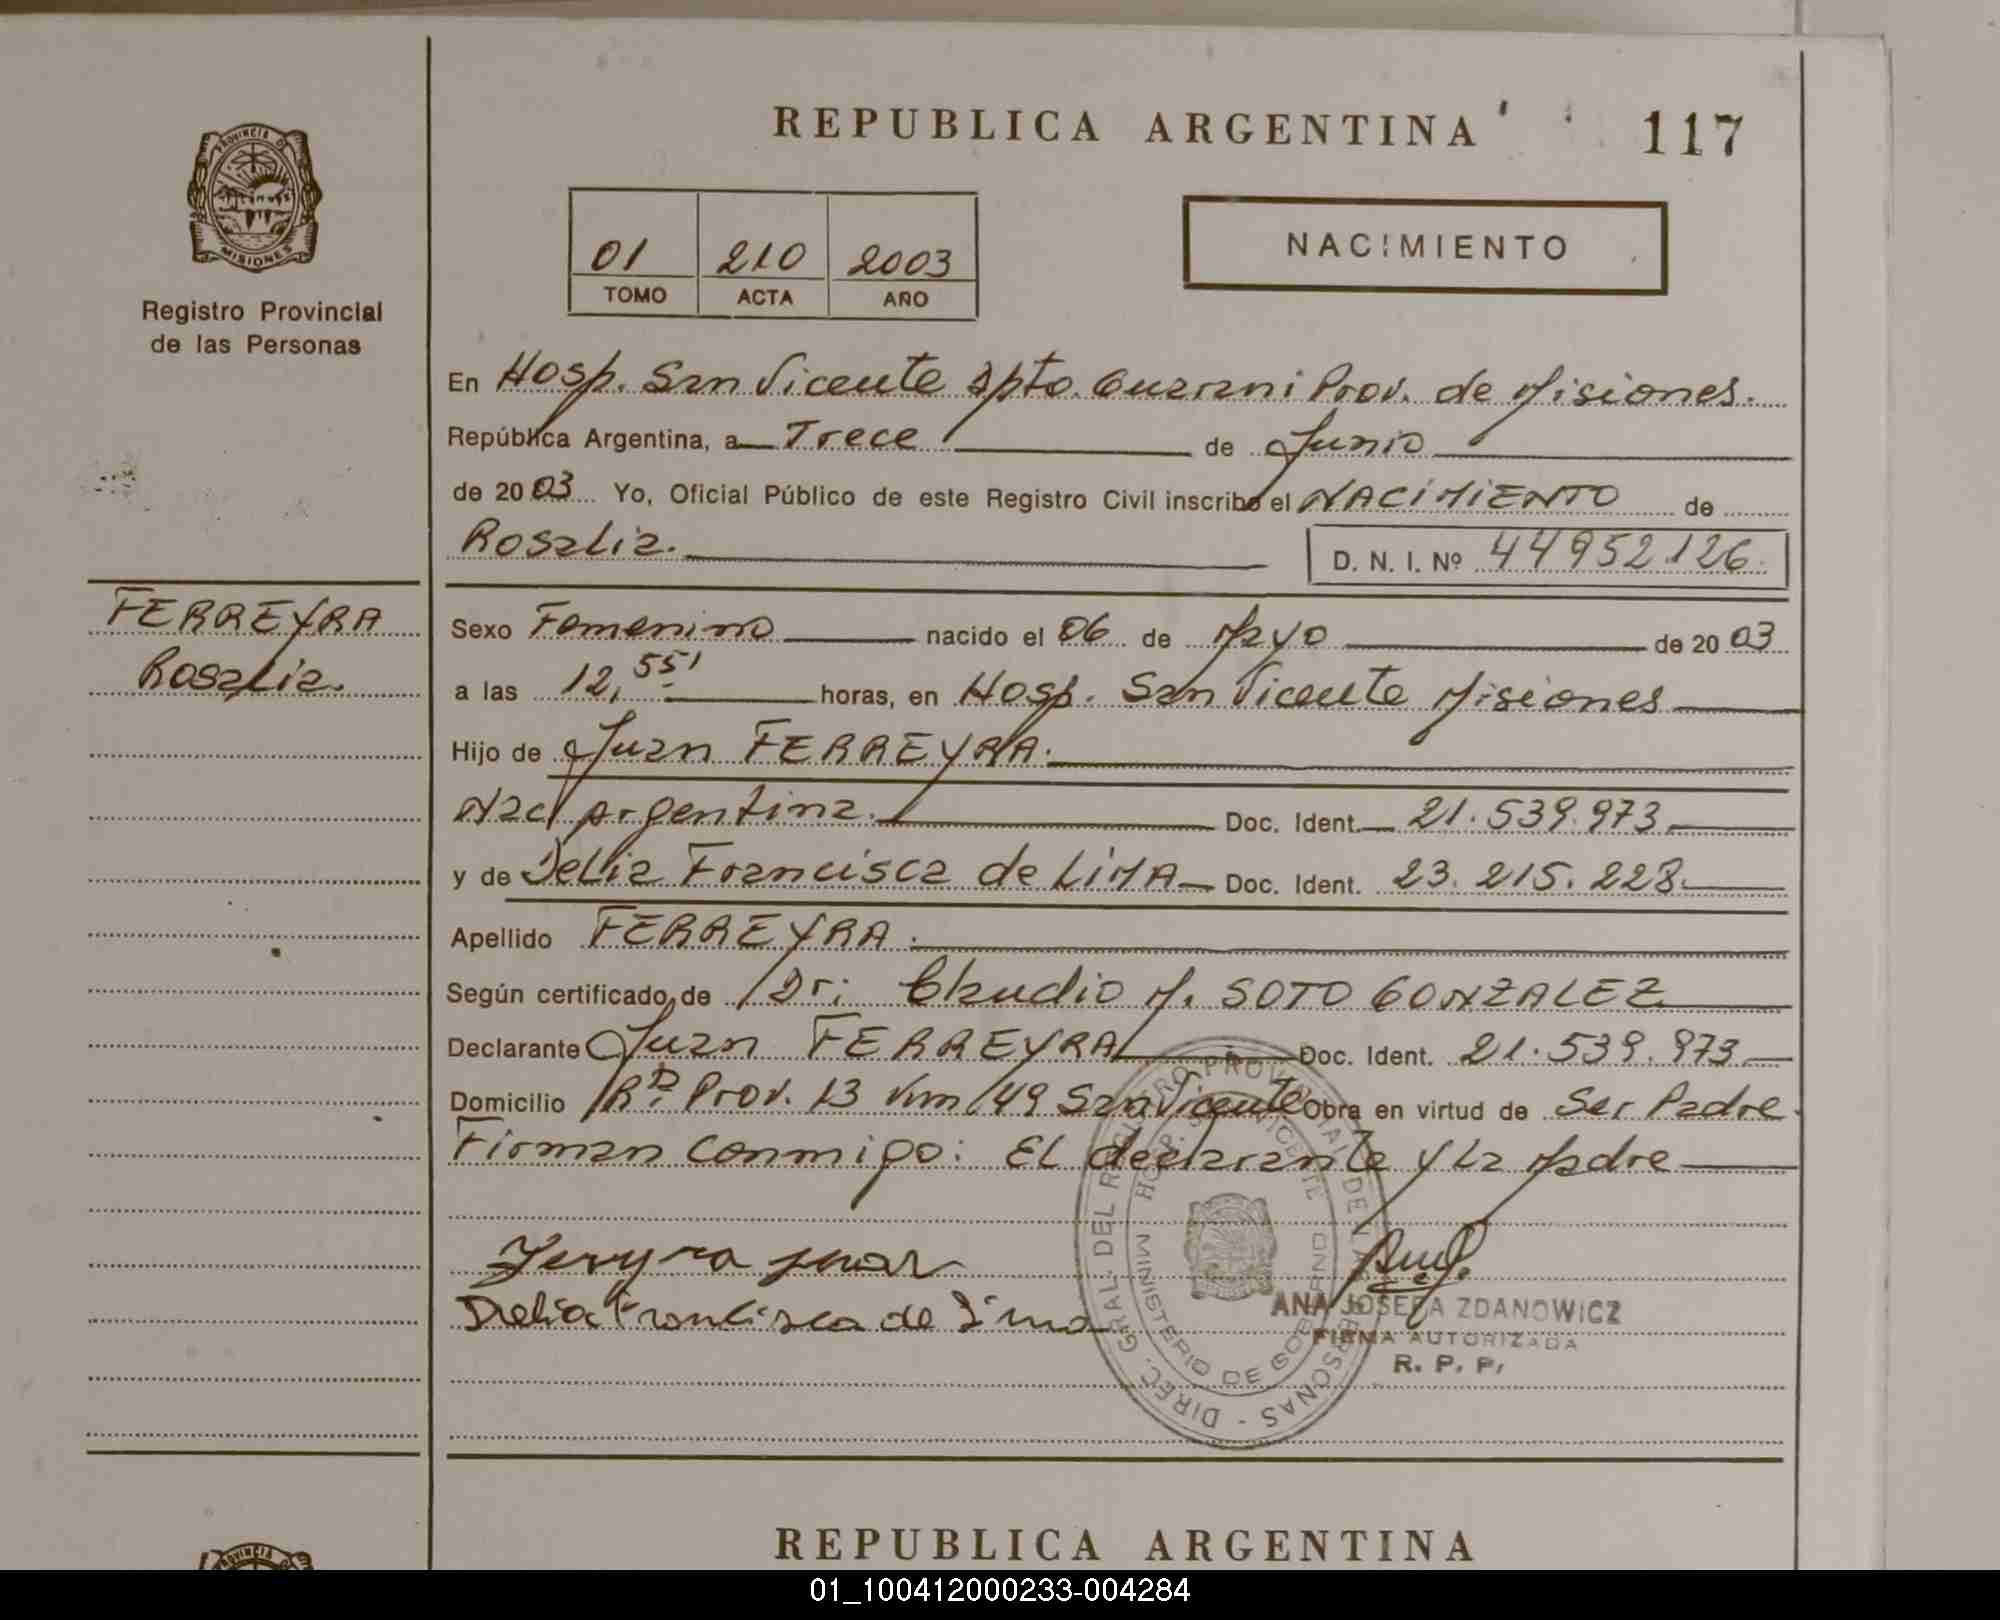 REPUBLICA ARGENTINA
117
PROVINCIA DE MISIONES
Registro Provincial
de las Personas
01 210 2003
TOMO ACTA AÑO
NACIMIENTO
En Hosp. San Vicente Dpto. Guarani Prov. de Misiones.
República Argentina, a Trece de Junio
de 2003 Yo, Oficial Público de este Registro Civil inscribo el NACIMIENTO de
Rosalia.
D. N. I. Nº 44952126.
FERREYRA
Rosalia.
Sexo Femenino nacido el 06 de Mayo de 2003
a las 12,55' horas, en Hosp. San Vicente Misiones
Hijo de Juan FERREYRA.
Nac Argentina. Doc. Ident. 21.539.973
y de Delia Francisca de LIMA Doc. Ident. 23.215.228.
Apellido FERREYRA.
Según certificado de Dr: Claudio M. SOTO GONZALEZ
Declarante Juan FERREYRA Doc. Ident. 21.539.973
Domicilio Prov. 13 Km 149 San Vicente Obra en virtud de Ser Padre.
Firman conmigo: EL declarante y La Madre
Ferreyra Juan
Delia Francisca de Lima
DIREC. GRAL. DEL REGISTRO PROVINCIAL DE LAS PERSONAS -
HOSP. SAN VICENTE
MINISTERIO DE GOBIERNO
ANA JOSEFA ZDANOWICZ
FIRMA AUTORIZADA
R. P. P.
REPUBLICA ARGENTINA
PROVINCIA
01_100412000233-004284